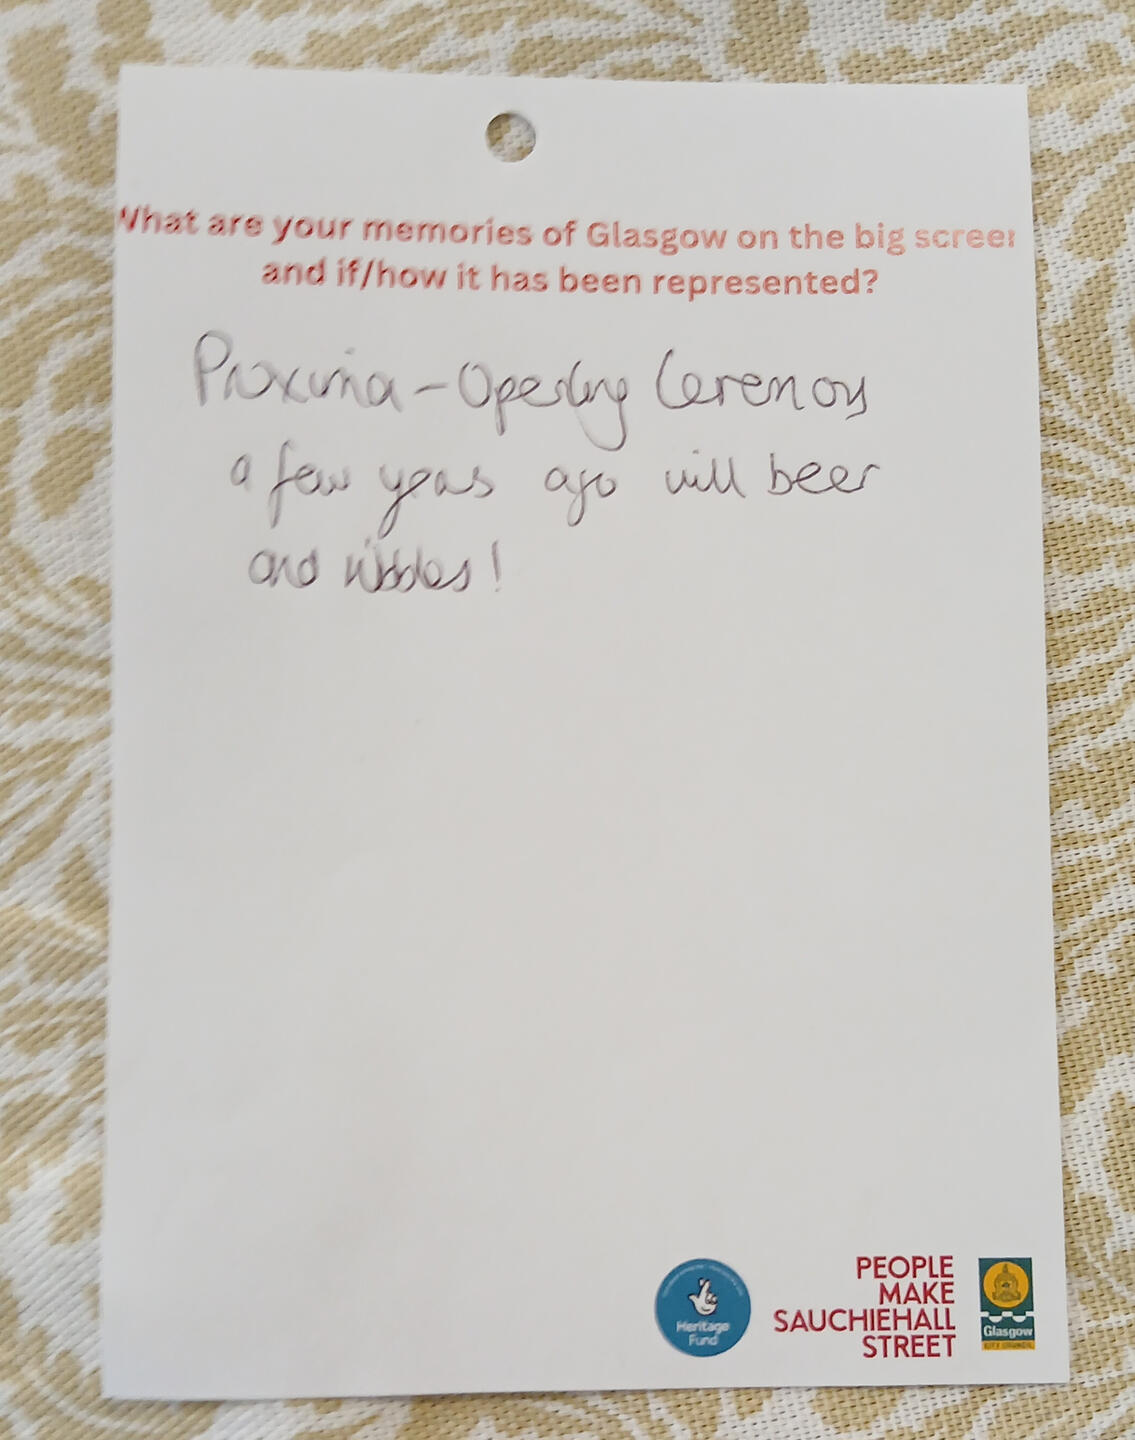 What are your memories of Glasgow on the big screen
and if/how it has been represented?
Proxima - Opening Ceremony
a few years ago will beer
and nibbles!
Heritage
Fund
PEOPLE
MAKE
SAUCHIEHALL
STREET
Glasgow
CITY COUNCIL